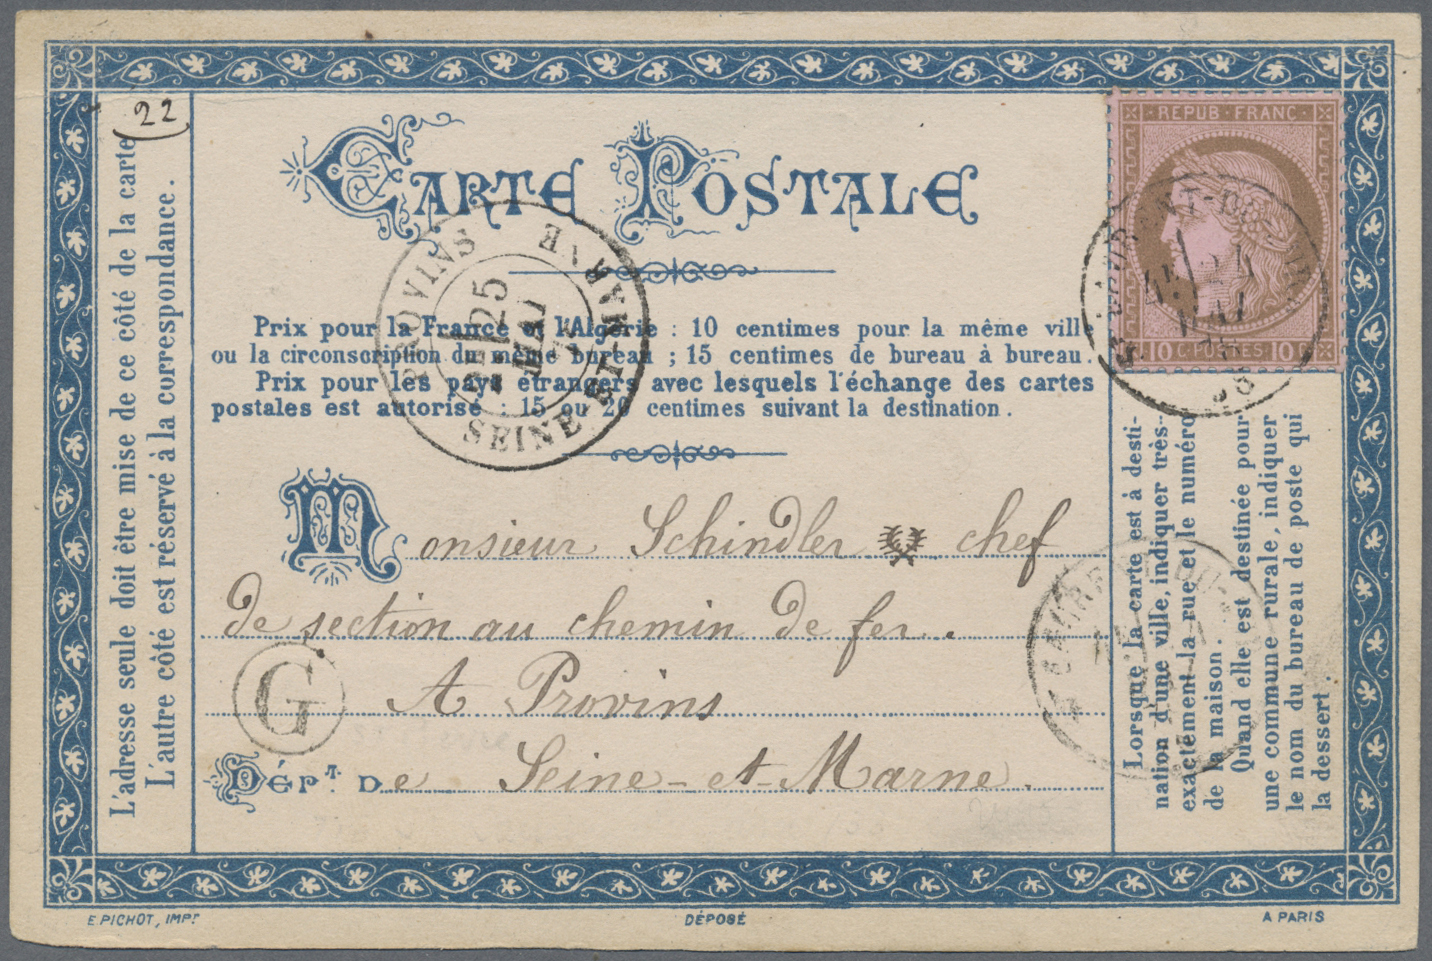 22
L'adresse seule doit être mise de ce côté de la carte
L'autre côté est réservé à la correspondance.
CARTE POSTALE
REPUB·FRANC
10 C·POSTES 10 C
24
MAI
PROVINS
2E
25
MAI
75
SEINE-ET-MARNE
Prix pour la France et l'Algérie : 10 centimes pour la même ville
ou la circonscription du même bureau ; 15 centimes de bureau à bureau.
Prix pour les pays étrangers avec lesquels l'échange des cartes
postales est autorisé : 15 ou 20 centimes suivant la destination.
Monsieur Schindler chef
de section au chemin de fer.
G
A Provins
Dépt. de Seine-et-Marne.
Lorsque la carte est à desti-
nation d'une ville, indiquer très-
exactement la rue et le numéro
de la maison.
Quand elle est destinée pour
une commune rurale, indiquer
le nom du bureau de poste qui
la dessert.
E. PICHOT, IMPr.
DÉPOSÉ
A PARIS